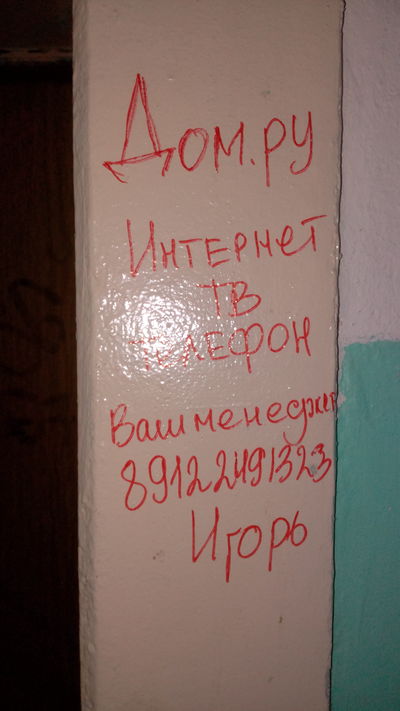 Дом.ру
Интернет
ТВ
Телефон
Ваш менеджер
89122491323
Игорь